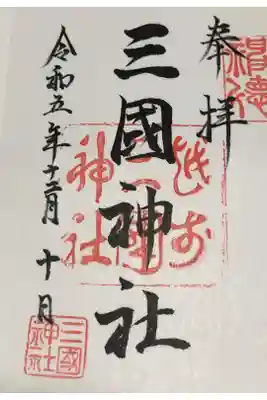 奉拝
越前
三國
神社
三國神社
令和五年十二月 十日
三國
神社
之印